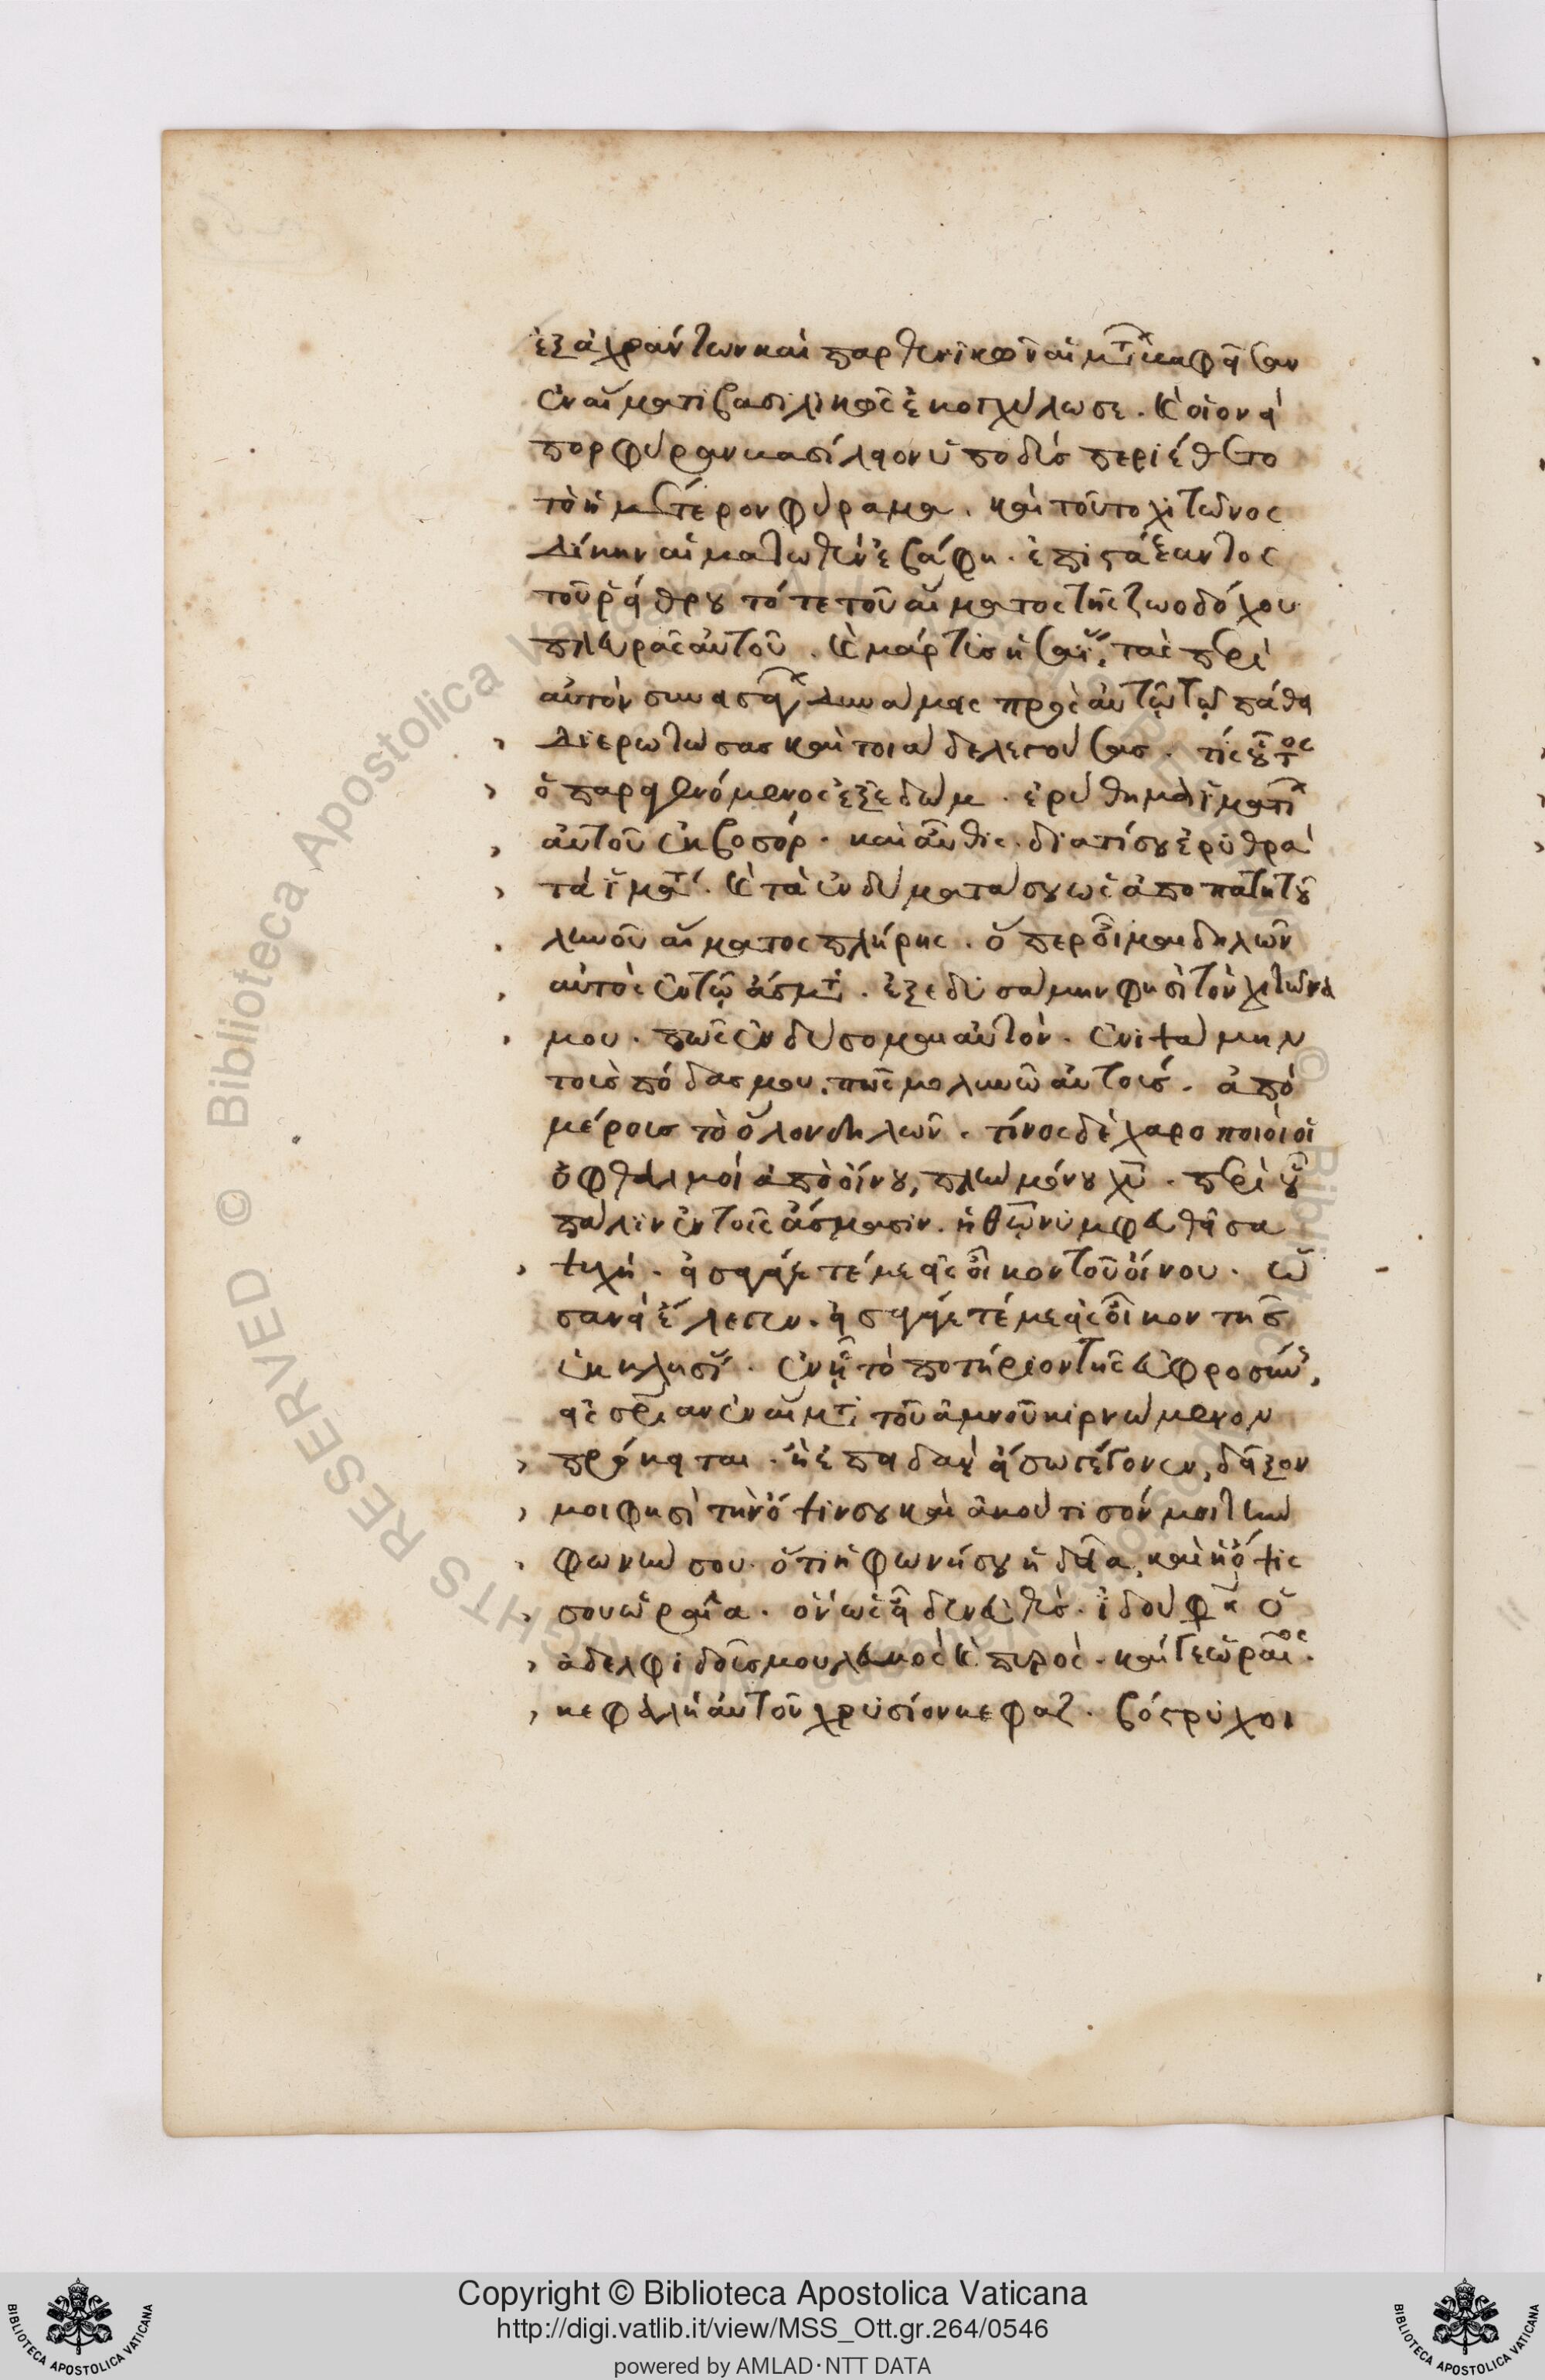 ἐξ ἀχράντων καὶ παρθενικῶν αἱμάτων
ἐν αἵματι βασιλικῶς ἐκογχύλωσε. καὶ οἱονεὶ
πορφύραν βασίλειον ὑποδὺς περιέθετο
τὸ ἡμέτερον φύραμα. καὶ τοῦτο χιτῶνος
δίκην αἱματωθὲν ἐβάφη. ἐπιστάξαντος
τοῦ ῥείθρου τότε τοῦ αἵματος τῆς ζωοδόχου
πλευρᾶς αὐτοῦ. καὶ μάρτυς ἡσαΐας, τὰς περὶ
αὐτὸν δυνάμεις πρὸς αὐτῷ τῷ πάθει
διερωτώσας καὶ τοιάδε λεγούσας. τίς οὗτος
ὁ παραγενόμενος ἐξ ἐδώμ. ἐρύθημα ἱματίων
αὐτοῦ ἐκ βοσόρ. καὶ αὖθις. διατί σου ἐρυθρὰ
τὰ ἱμάτια. καὶ τὰ ἐνδύματά σου ὡς ἀπὸ πατητοῦ
ληνοῦ αἵματος πλήρης. ὅπερ οἶμαι δηλῶν
αὐτὸς ἐν τῷ ᾄσματι. ἐξεδυσάμην φησὶ τὸν χιτῶνά
μου. πῶς ἐνδύσομαι αὐτόν. ἐνιψάμην
τοὺς πόδας μου. πῶς μολυνῶ αὐτούς. ἀπὸ
μέρους τὸ ὅλον δηλῶν. τίνος δὲ χαροποιοὶ οἱ
ὀφθαλμοὶ ἀπὸ οἴνου, πλὴν μόνου χυ. περὶ οὗ
πάλιν ἐν τοῖς ᾄσμασιν. ἡ θῷ νυμφευθεῖσα
ψυχή. εἰσαγάγετέ με εἰς οἶκον τοῦ οἴνου. ὡ
σανεὶ ἔλεγεν. εἰσαγάγετέ με εἰς οἶκον τῆς
ἐκκλησίας. ἐν ᾗ τὸ ποτήριον τῆς εὐφροσύνης,
αἵματι τοῦ ἀμνοῦ κιρνώμενον
πρόκειται. ἢ ἐπειδὰν εἴσω γέγονεν, δεῖξον
μοι φησὶ τὴν ὄψιν σου καὶ ἀκούτισόν μοι τὴν
φωνήν σου. ὅτι ἡ φωνή σου ἡδεῖα, καὶ ἡ ὄψις
σου ὡραία. ὃν ὡς εἶδεν εὐθὺς. ἰδού φησιν ὁ
ἀδελφιδοῦς μου λευκὸς καὶ πυρρός. καί γε ὡραῖος.
κεφαλὴ αὐτοῦ χρυσίον κεφάζ. βόστρυχοι
Copyright © Biblioteca Apostolica Vaticana
http://digi.vatlib.it/view/MSS_Ott.gr.264/0546
powered by AMLAD·NTT DATA